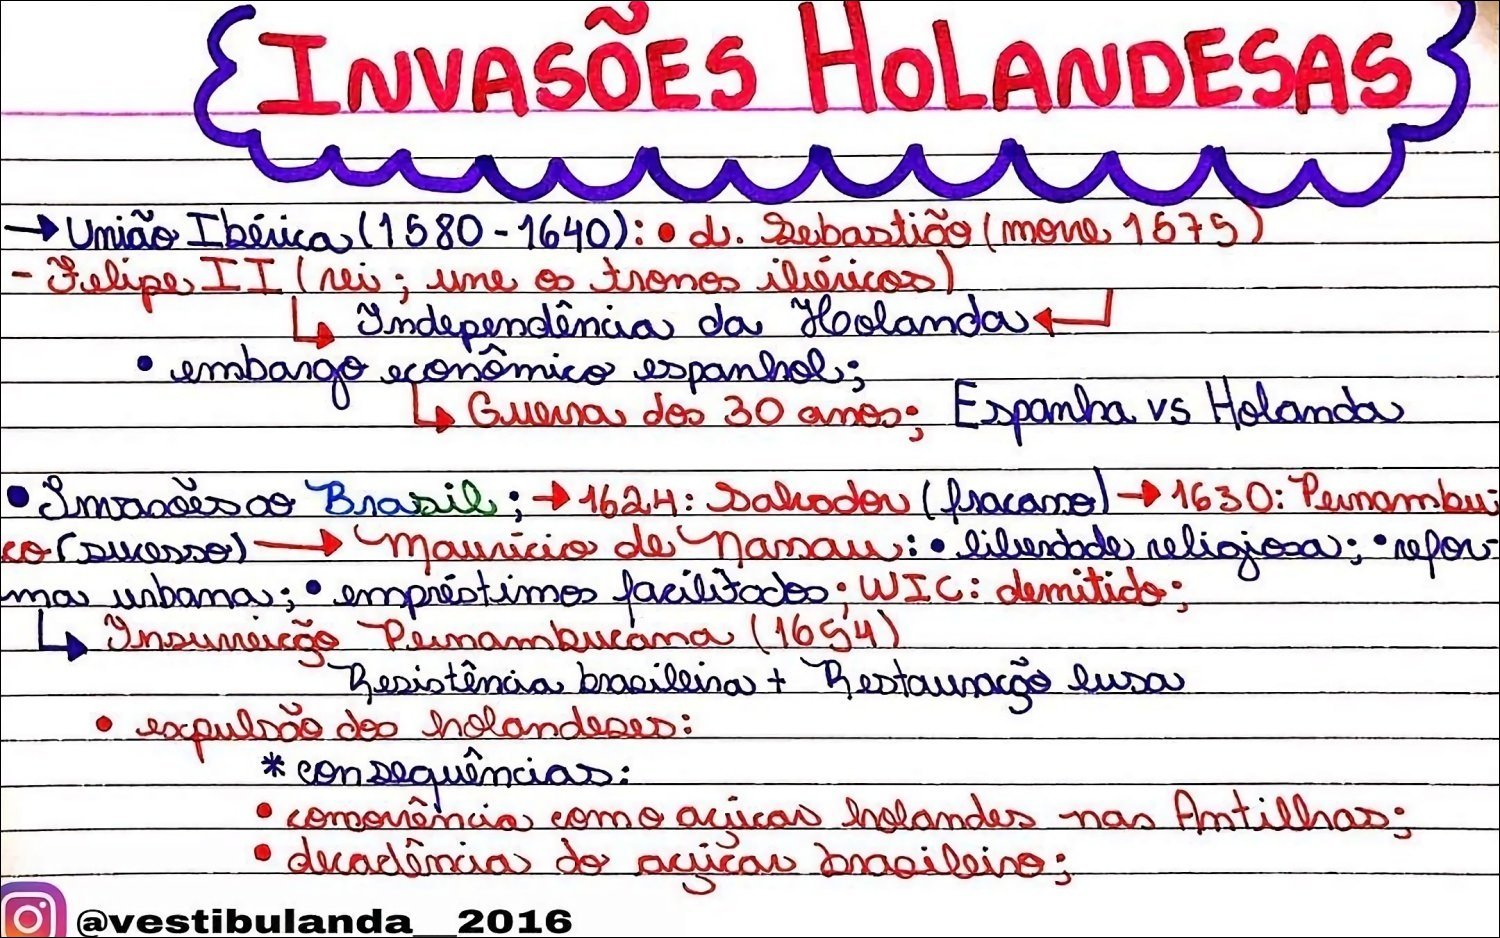 INVASÕES HOLANDESAS
→ União Ibérica (1580-1640): • d. Sebastião (morre 1575)
- Felipe II (rei; une os tronos ibéricos)
Independência da Holanda
• embargo econômico espanhol;
Guerra dos 30 anos; Espanha vs Holanda
• Invasões ao Brasil; → 1624: Salvador (fracasso) → 1630: Pernambu-
co (sucesso) → Maurício de Nassau: • liberdade religiosa; • refor-
ma urbana; • empréstimos facilitados; WIC: demitido;
Insurreição Pernambucana (1654)
Resistência brasileira + Restauração lusa
• expulsão dos holandeses:
* consequências:
• concorrência com o açúcar holandês nas Antilhas;
• decadência do açúcar brasileiro;
@vestibulanda__2016